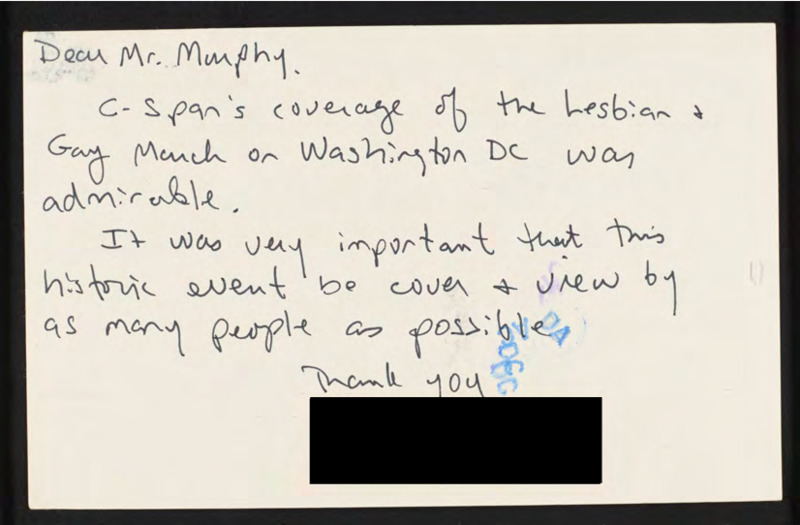 Dear Mr. Murphy.
C-Span's coverage of the Lesbian &
Gay March on Washington DC was
admirable.
It was very important that this
historic event be cover & view by
as many people as possible
Thank you